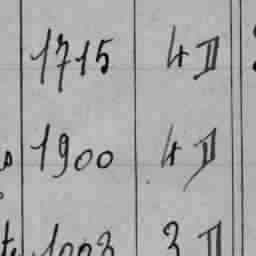 1715 4 II
1900 4 II
3 II